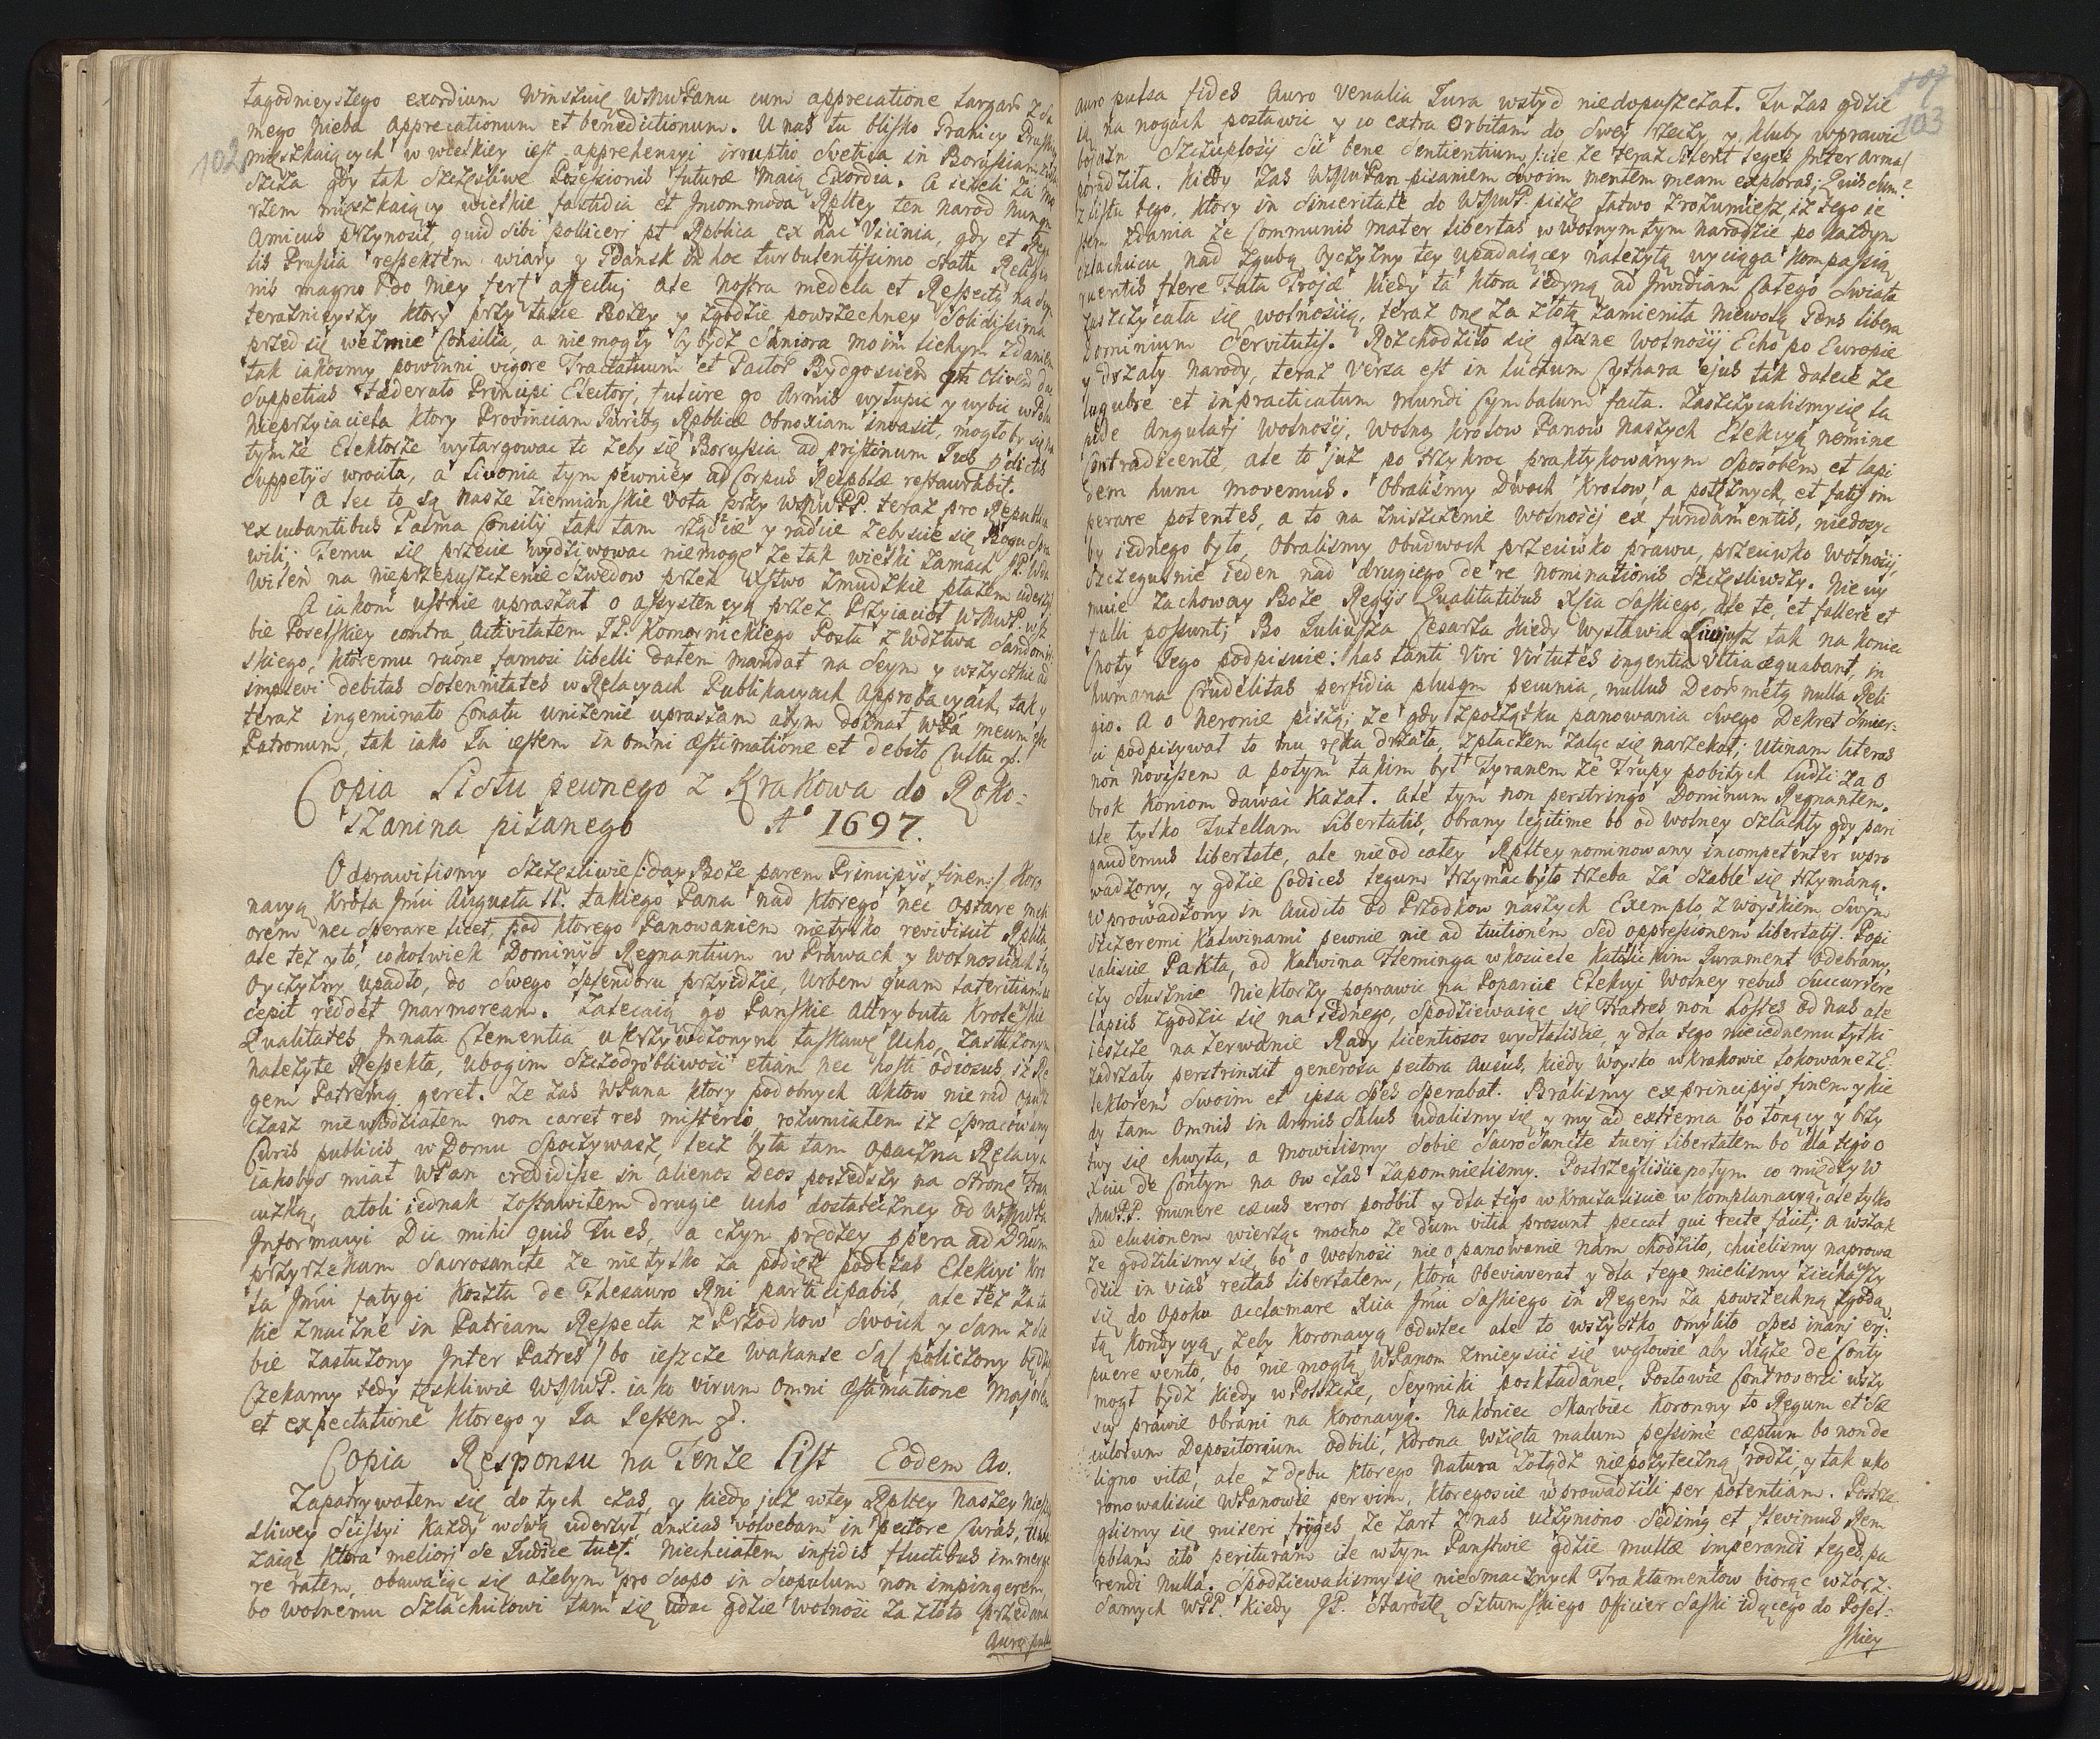 102
łagodnieyszego exordium winszuię WMMPanu cum apprecatione largar z sa
mego Nieba apprecationum et benedictionum. U nas tu blisko Granicy Pruskiey
mieszkaiących w wielkiey iest apprehensyi irruptio Svetica in Borussiam
gdy tak szczęśliwe Possessionis futuræ maią Exordia. A ieżeli za mo
rzem mieszkaiący wielkie fastidia et Incommoda Rpltey ten narod nunqm
Amicus przynosił, quid sibi polliceri pt Rpblica ex hac Vicinia, gdy et
lis Prussia respektem wiary y Gdansk in hoc turbulentissimo Statu Religio
nis magno do niey fert affectu; ale nostra medela et Respectus na
teraznieyszy ktory przy łasce Bożey y zgodzie powszechney Solidissima
przed się weźmie Consilia, a niemogły by bydz Saniora moim lichym zdaniem
tak iakosmy powinni vigore Tractatuum et Pactor Bydgoscien
Suppetias Fæderato Principi Electorj, tuscire go Armis wystąpic y wybic
Nieprzyiaciela ktory Provinciam Juribq Rpblicæ Obnoxiam invasit, mogłoby się
tymże Elektorze wytargowac to żeby się Borussia ad pristinum Jus
Suppetÿs wrocila, a Livonia tym pewniey ad Corpus Reipblæ restaurabit.
A lec to są nasze ziemianskie vota przy WMMPP. teraz pro Republica
excubantibus Palma Consilij tak tam rządzcie y radzcie żebyscie się Bogu spra
wili; Temu się przecie wydziwowac niemogę że tak wielki zamach JP. Wdy
Wilen na nieprzepuszczenie Szwedow przez Xstwo Zmudzkie płazem uderzył.
A iakom ustnie upraszał o assystencyą przez Przyiacioł WMMP. w
bie Poselskiey contra Activitatem JP. Komornickiego Posła z Wdztwa Sandomir
skiego, ktoremu raõne famosi libelli dałem Mandat na Seym y wszystkie ad
implevi debitas Solennitates w Relacyach Publikacyach Approbacyach, tak y
teraz ingeminato Conatu uniżenie upraszam abym doznał WPa meum esse
Patronum, tak iako Ja iestem in omni æstimatione et debito Cultu &c.
Copia Listu pewnego z Krakowa do Roko=
szanina pisanego A° 1697.
Odprawilismy szczęśliwie /:day Boże parem Principijs finem:/ Koro
nacyą Krola Jmci Augusta II. takiego Pana nad ktorego nec optare meli
orem nec sperare licet, pod ktorego Panowaniem nietylko reviviscit Rplta
ale też y to, cokolwiek Dominijs Regnantium w Prawach y Wolnosciach tey
Oyczyzny upadło, do swego splendoru przyidzie, Urbem quam lateritiam
cepit reddet marmoream. Zalecaią go Panskie Attrybuta Krolewskie
Qualitates, Innata Clementia, ukrzywdzonym łaskawe Ucho, Zasłużonym
należyte Respekta, Ubogim szczodrobliwosc etiam nec hosti odiosus, iż Re
gem Patremq geret. Że zas WPana ktory podobnych Aktow nie rad opusz
czasz niewidziałem non caret res misterio, rozumiałem iż spracowany
Curis publicis w Domu spoczywasz, lecz była tam opaczna Relacya
iakobys miał WPan credidisse in alienos Deos poszedszy na stronę Fran
cuzką, atoli iednak zostawiłem drugie Ucho dostateczney od WMMPa
Informacyi Dic mihi quis Tu es, a czym prędzey ppera ad Dnum
przyrzekam Sacrosancte że nietylko za podięte podczas Elekcyi Kro
la Jmci fatygi Koszta de Thesauro Rni participabis, ale też
kie znaczne in Patriam Respecta z Przodkow swoich y sam z sie
bie zasłużony Inter Patres /bo ieszcze Wakanse są/ policzony będziesz
Czekamy tedy teskliwie WMMP. iako virum omni æstimatione Majorem
et expectatione ktorego y Ja Iestem &c.
Copia Responsu na Tenże List Eodem Ao.
Zapatrywałem się do tych czas, y kiedy już w tey Rpltey naszey niesz
śliwey scissyi każdy w swą uderzył, anxias volvebam in pectore Curas,
żaiąc ktora meliorj se Judice tuet. Niechciałem infidis fluctibus immerge
re ratem, obawaiąc się ażebym pro scopo in scopulum non impingerem,
bo wolnemu Szlachcicowi tam się udac gdzie Wolnosc za złoto przedana
Auro pulsa
103
Auro pulsa fides Auro venalia Jura wstyd niedopuszczał. Tu zas gdzie
ią na nogach postawic y co extra Orbitam do swey rzeczy y kluby wprawic
boiazn szczupłosci sic bene sentientium /:ile że teraz Silent leges Inter arma/
poradziła. Kiedy zas WMMPan pisaniem swoim mentem meam exploras; Quis sum?
z listu tego, ktory in sinceritate do WMMP. piszę łatwo zrozumiesz, iż tego ie
stem zdania że Communis mater libertas w wolnym tym narodzie po każdym
szlachcicu nad zgubą Oyczyzny tey upadaiącey należytą wyciąga kompassią
quentis flere Fata Trojæ kiedy ta ktora iedyną ad Invidiam całego Swiata
zaszczycała się wolnoscią, teraz onę za złotą zamieniła niewolą Gens libera
Dominium Servitutis. Rozchodziło się głosne Wolnosci Echo po Europie
y drżały Narody, teraz versa est in luctum Cythara ejus tak dalece że
lugubre et inpracticatum mundi Cymbalum facta. Zaszczycalismy się la
pide Angularj Wolnosci, wolną Krolow Panow Naszych Elekcyą nemine
Contradicente, ale to już po trzykroc praktykowanym sposobem et lapi
dem hunc movemus. Obralismy Dwoch Krolow, a potężnych, et satis im
perare potentes, a to na zniszczenie wolnosci ex fundamentis, niedosyc
by iednego było, Obralismy Obudwoch przeciwko prawu, przeciwko Wolnosci,
szczegulnie ieden nad drugiego de re Nominationis szczęśliwszy. Nie uy
muie Zachoway Boże Regijs Qualitatibus Xcia Saskiego, ale te, et fallere et
falli possunt; Bo Juliusza Cesarza kiedy wystawia Liwjusz tak na koniec
Cnoty Jego podpisuie: has tanti Viri Virtutes ingentia Vitia æquabant, in
humana Crudelitas perfidia plusqm pecunia, nullus Deor metq nulla Reli
gio. A o Neronie piszą; że gdy zpoczątku panowania Swego Dekret Smier=
ci podpisywał to mu ręka drżała, zpłaczem żaląc się narzekał; Utinam literas
non novissem a potym takim był Tyranem że Trupy pobitych Ludzi za O
brok koniom dawac kazał. Ale tym non perstringo Dominum Regnantem.
ale tylko Tutellam Libertatis, Obrany legitime bo od wolney Szlachty gdy pari
gaudemus libertate, ale nie od całey Rpltey nominowany incompetenter wpro
wadzony, y gdzie Codices legum trzymac było trzeba za szable się trzymano.
Wprowadzony in Audito od Przodkow naszych Exemplo, z woyskiem swym
szczeremi Kalwinami pewnie nie ad tuitionem sed oppressionem Libertatis. Popi
saliscie Pakta, od Kalwina Fleminga w kosciele Katolickim Jurament odebrany,
czy słusznie niektorzy poprawic na Poparcie Elekcyi Wolney rebus succurrere
lapsis zgodzic się na iednego, spodziewaiąc się Fratres non hostes od nas ale
ieszcze na zerwanie Rady licentiosos wysłaliscie, y dla tego nieiednemu łytki
zadrżały perstrinxit generosa pectora Ausus, kiedy Woysko w Krakowie lokowane z E
lektorem swoim et ipsa spes sperabat. Bralismy ex principijs finem y kie
dy tam Omnis in Armis Salus udalismy się y my ad extrema bo tonący y brzy
twy się chwyta, a mowilismy sobie Sacrosancte tuerj Libertatem bo dla tego o
Xciu de Contym na ow czas zapomnielismy. Postrzegliscie potym co między W
MMPP. munere cæcus error porobił y dla tego wkraczaliscie w Komplanacyą; ale tylko
ad elusionem wierząc mocno że dum vitia prosunt peccat qui recte facit; a wszak
że godzilismy się bo o wolnosc nie o panowanie nam chodziło, chcielismy naprowa
dzic in vias rectas libertatem, ktora Obeviaverat y dla tego mielismy ziechawszy
się do Opoku acclamare Xcia Jmci Saskiego in Regem za powszechną zgodą
tą kondycyą, żeby Koronacyą odwlec ale to wszystko omyliło spes inanj eri=
puere vento, bo nie mogła WPanom zmieyscic się w głowie aby Xiąże de Conty
mogł bydz kiedy w Polszcze, Seymiki poskładane, Posłowie Controversi wszy
scy prawie obrani na Koronacyą. Nakoniec Skarbiec Koronny to Regum et sæ
culorum Depositorium odbili, Korona wzięta malum pessime cæptum bo non de
ligno vitæ, ale z dębu ktorego Natura żołądz niepożyteczną rodzi, y tak uko
ronowaliscie WPanowie per vim, ktoregoscie wprowadzili per potentiam. Postrze
glismy się miseri fryges że żart z nas uczyniono sedimq et flevimus Rem
pblam cito perituram ile w tym Panstwie gdzie multæ imperandi leges, pa
rendi nulla. Spodziewalismy się niesmacznych Traktamentow biorąc wzor z
samych WPP. Kiedy JP. Starostę Sztumskiego Officier Saski idącego do Posel=
skiey